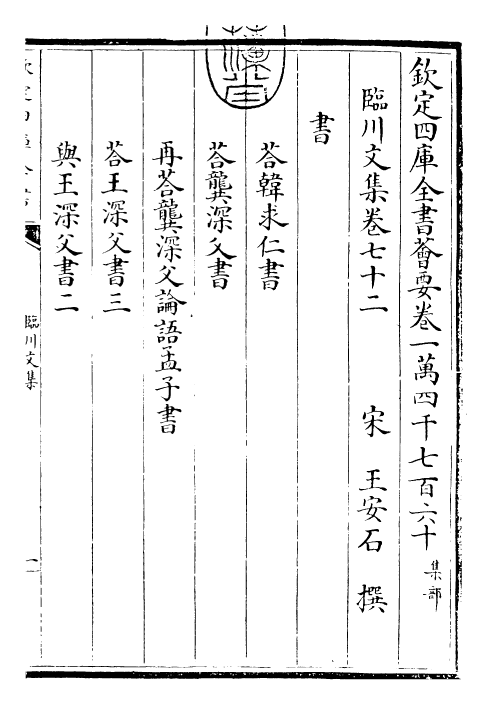 欽定四庫全書薈要卷一萬四千七百六十 集部
臨川文集卷七十二 宋 王安石 撰
書
荅韓求仁書
荅龔深父書
再荅龔深父論語孟子書
荅王深父書三
與王深父書二
臨川文集
一